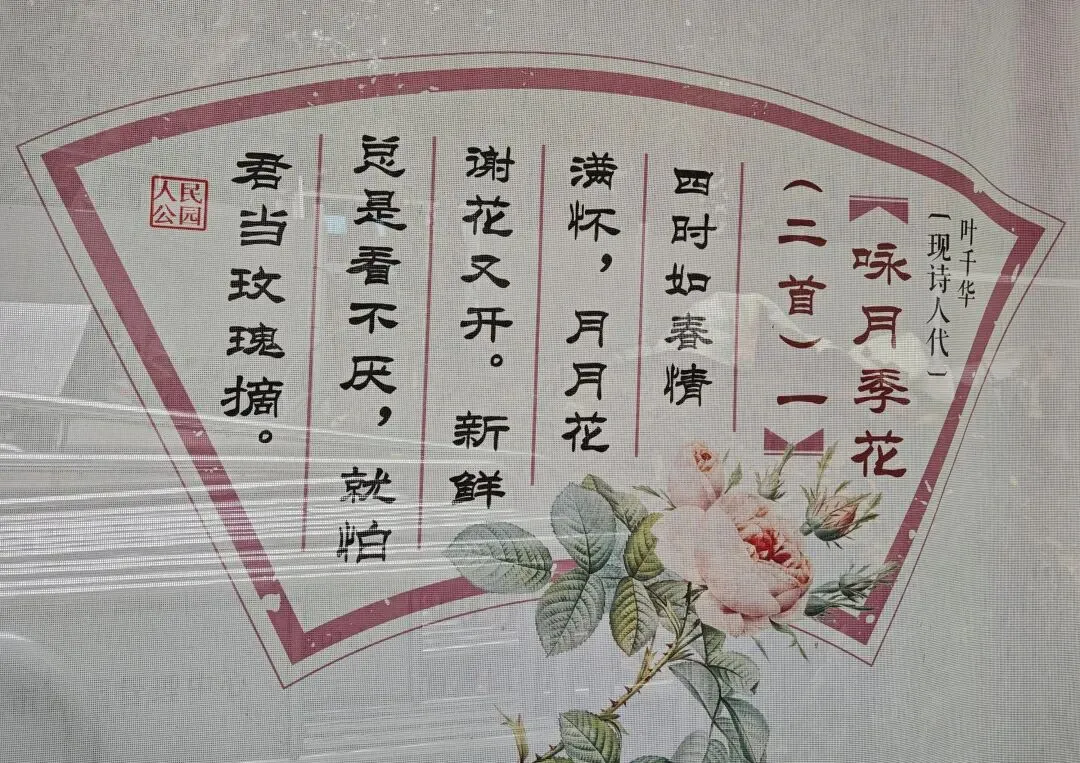 【咏月季花
（二首）一】
叶千华
〔现诗人代〕
四时如春情
满怀，月月花
谢花又开。新鲜
总是看不厌，就怕
君当玫瑰摘。
人民
公园